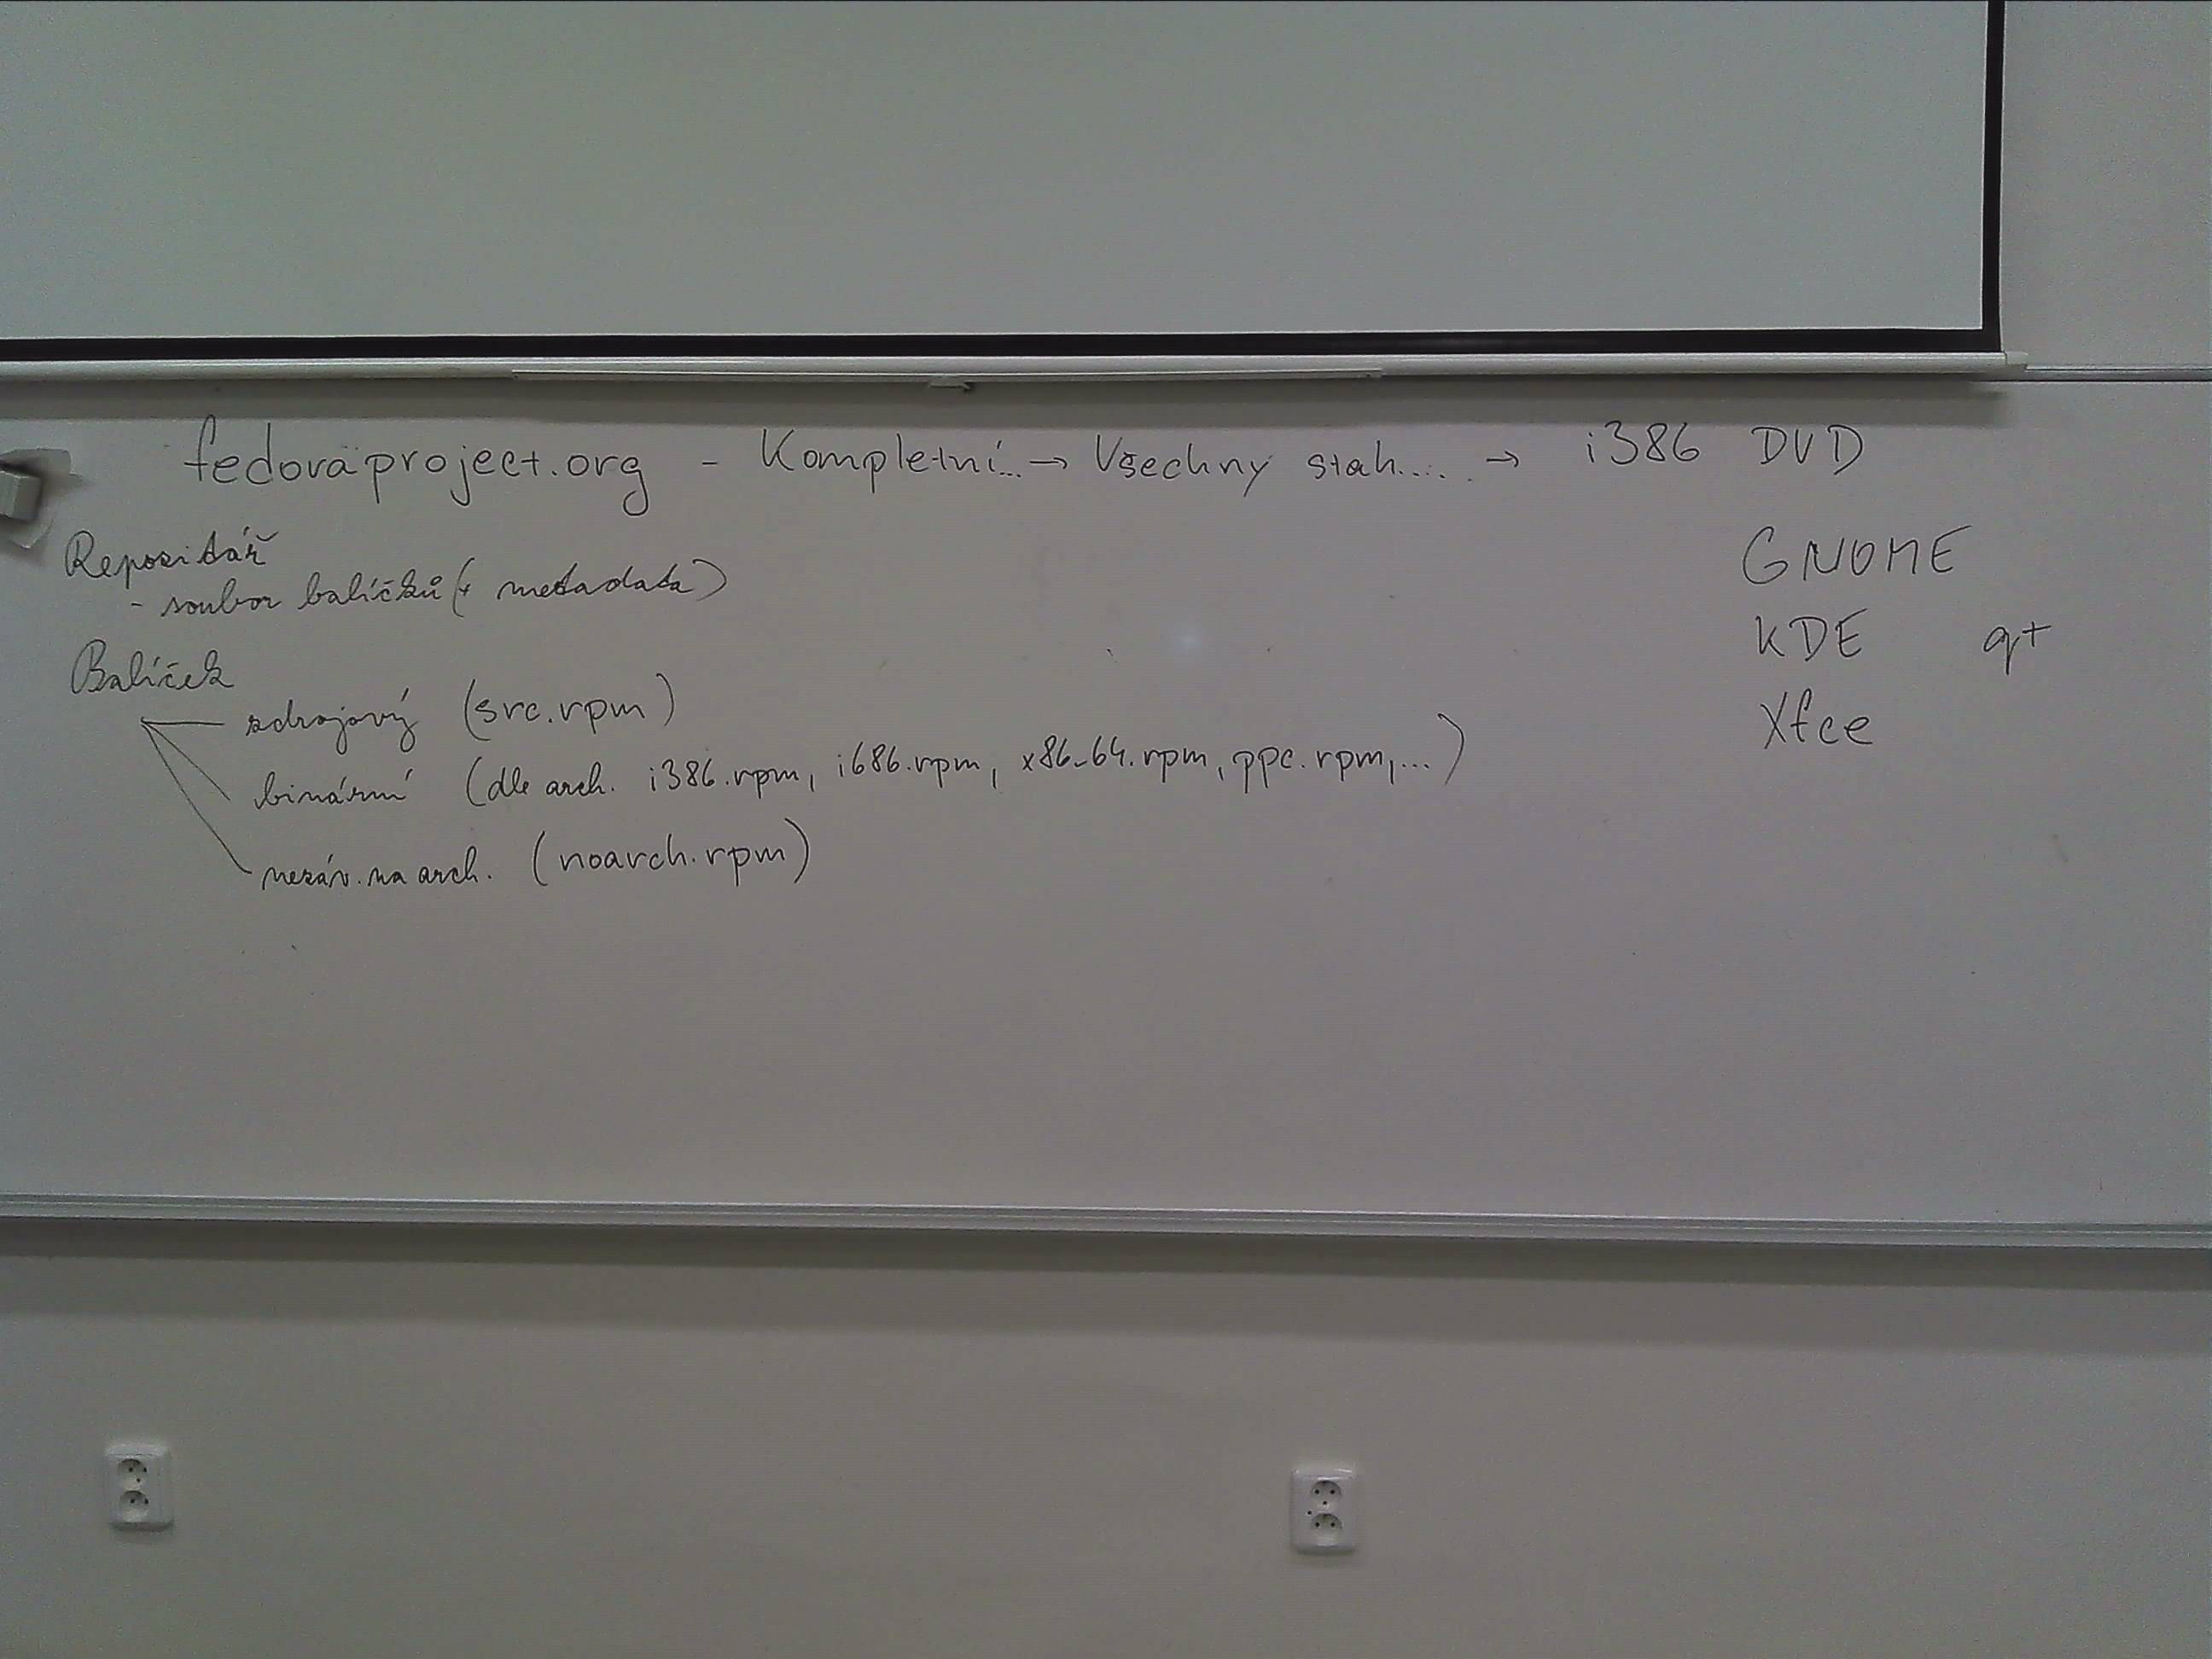 fedoraproject.org - Kompletní... → Všechny stah.... → i386 DVD
Repozitář
- soubor balíčků (+ metadata)
Balíček
zdrojový (src.rpm)
binární (dle arch. i386.rpm, i686.rpm, x86_64.rpm, ppc.rpm,...)
nezáv. na arch. (noarch.rpm)
GNOME
KDE qt
Xfce